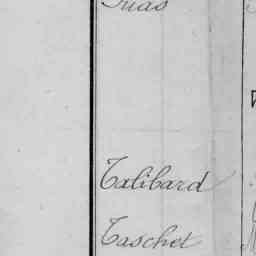 Talibard
Taschet